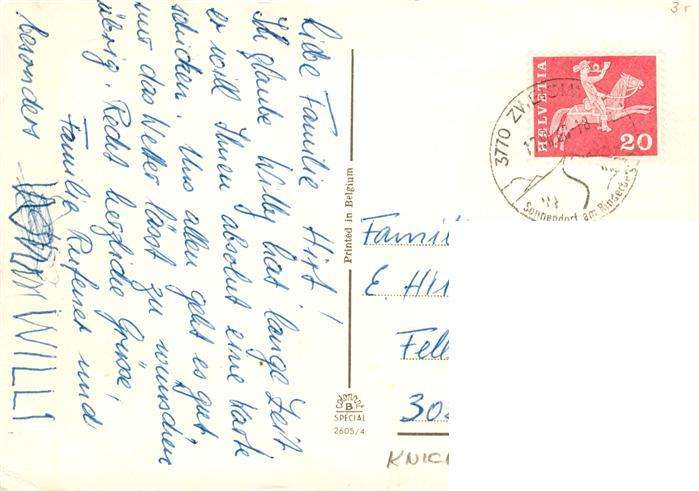 Liebe Familie Hirt!
Ich glaube Willy hat lange Zeit
er will Ihnen absolut eine Karte
schicken. Uns allen geht es gut
nur das Wetter lässt zu wünschen
übrig. Recht herzliche Grüsse,
Familie und
besonders WILLI
Printed in Belgium
SPECIAL
2605/4
B
Famil
E. Hir
Fel
30
KNIC
HELVETIA
20
3770 ZW
Sonnendorf am
3.-